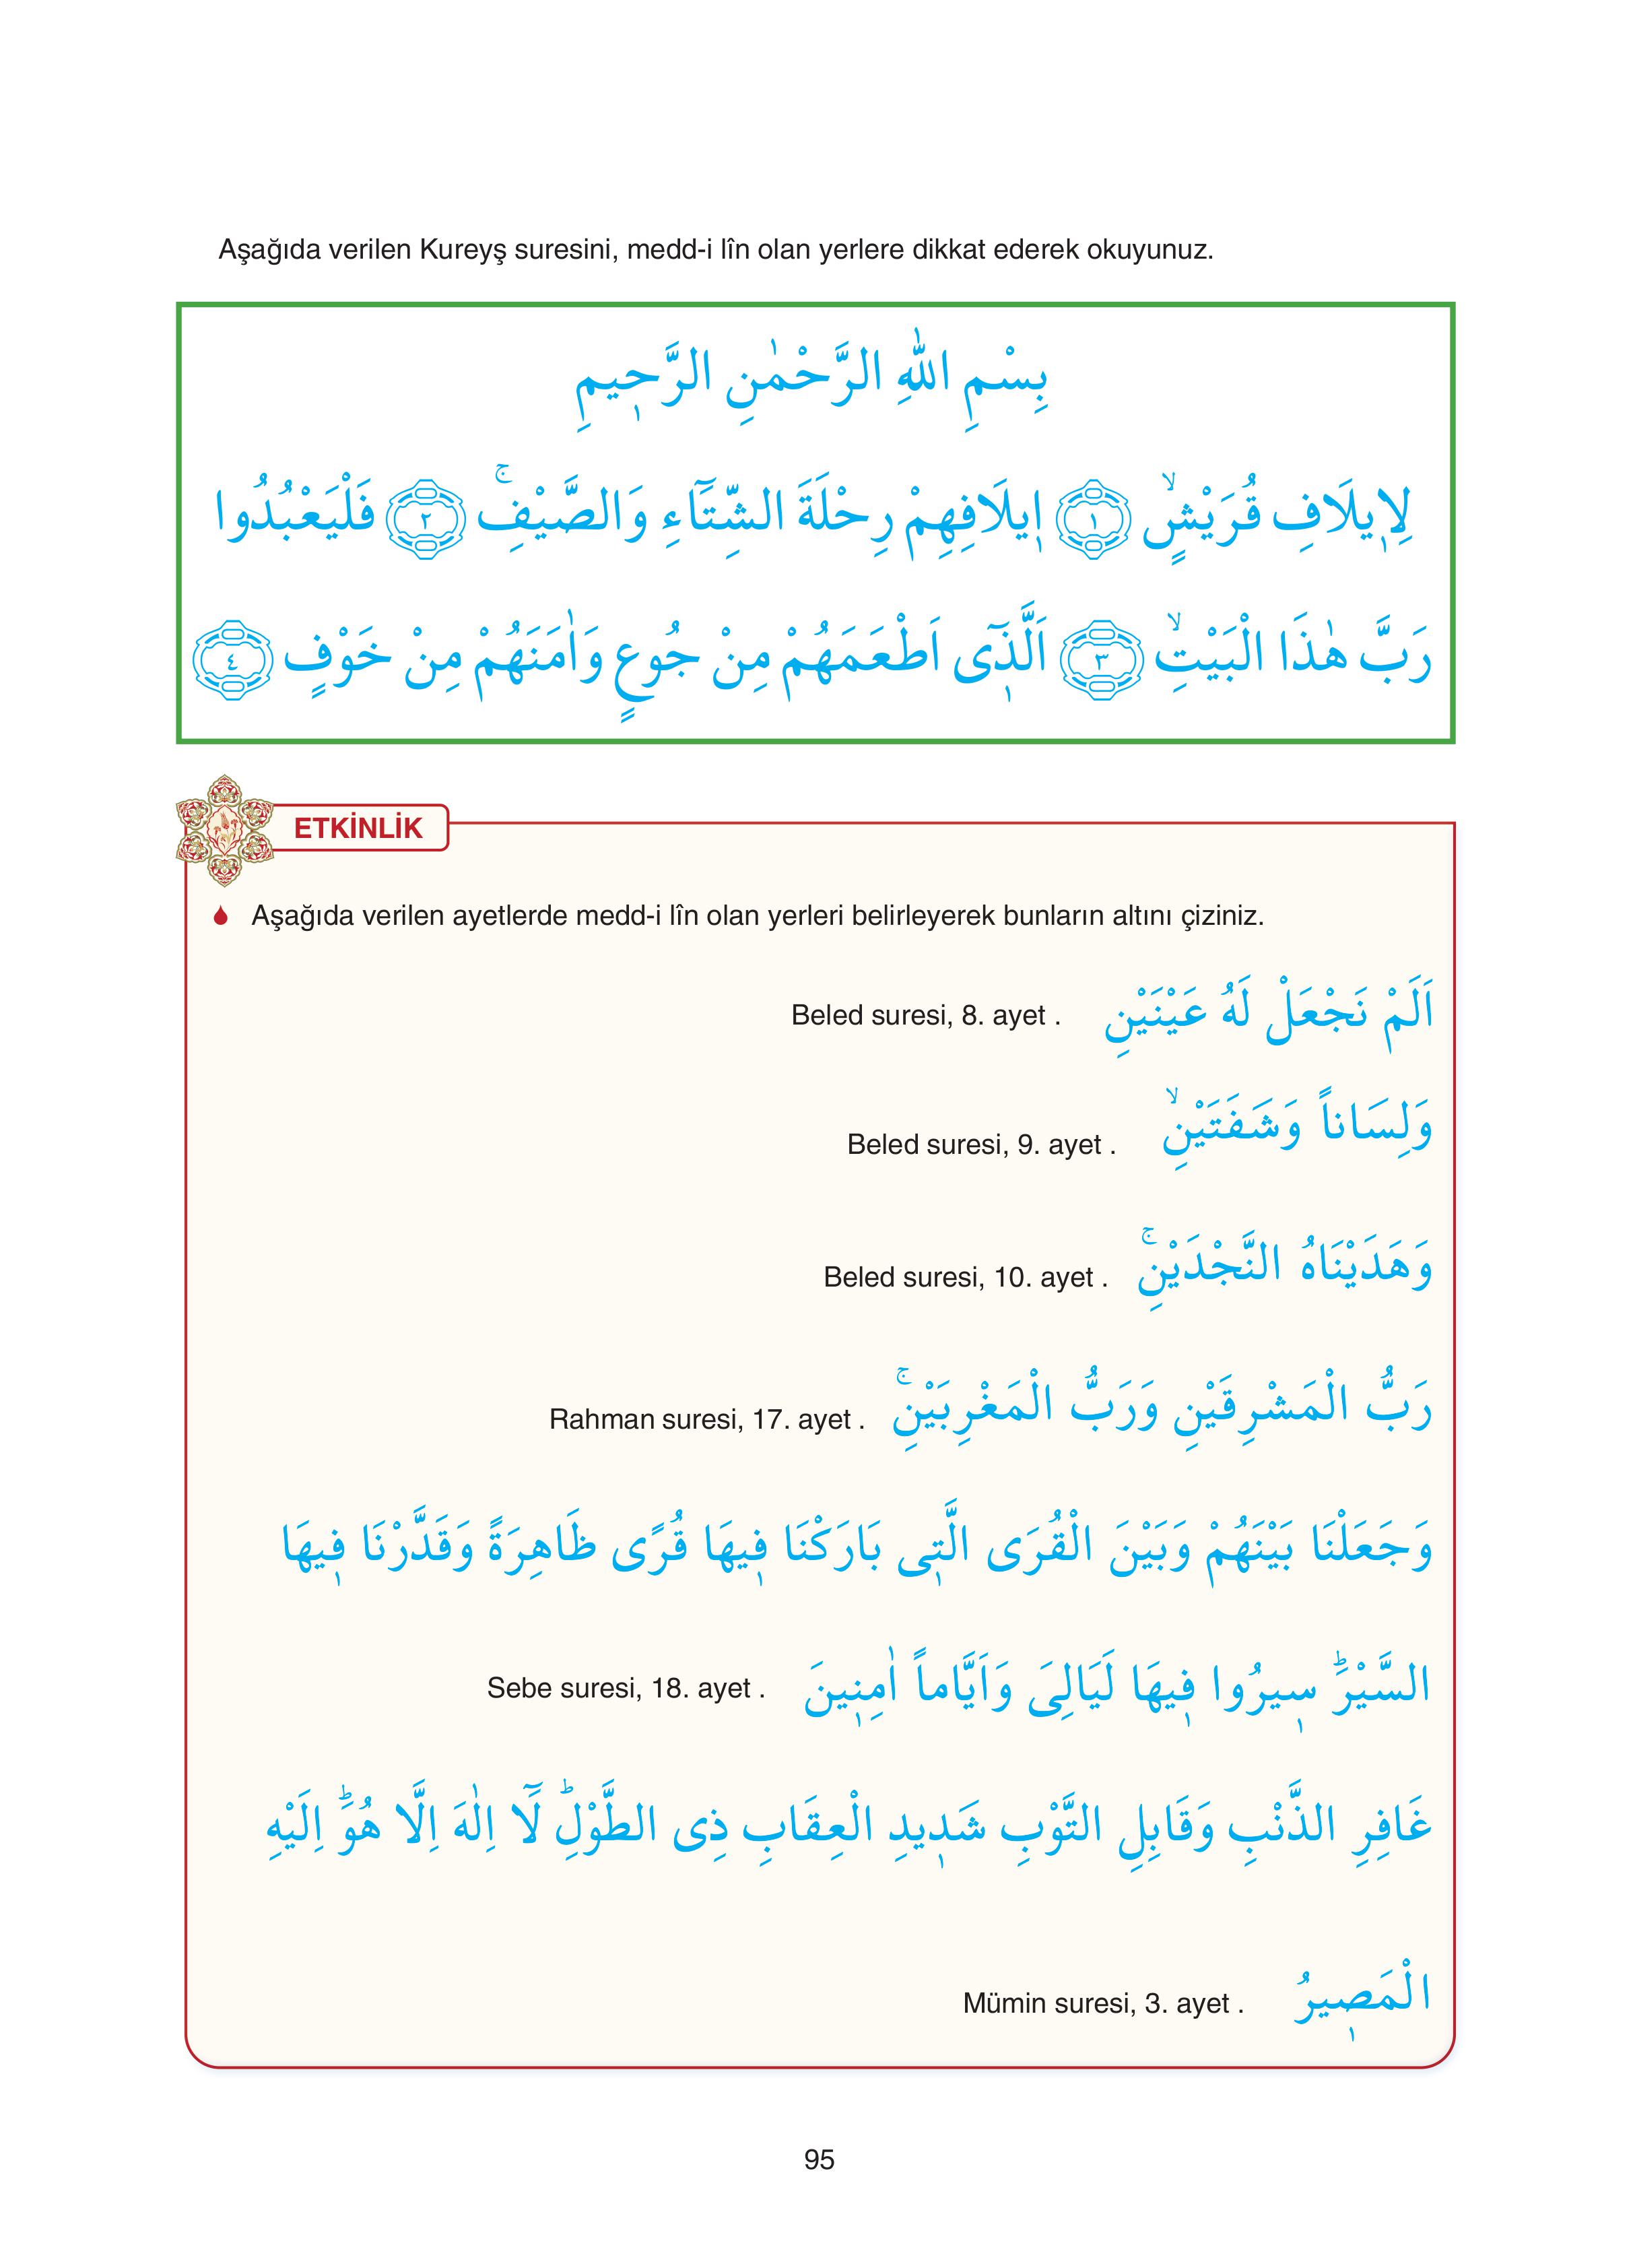 Aşağıda verilen Kureyş suresini, medd-i lîn olan yerlere dikkat ederek okuyunuz.
بِسْمِ اللّٰهِ الرَّحْمٰنِ الرَّحٖيمِ
لِاٖيلَافِ قُرَيْشٍۙ ١ اٖيلَافِهِمْ رِحْلَةَ الشِّتَٓاءِ وَالصَّيْفِۚ ٢ فَلْيَعْبُدُوا
رَبَّ هٰذَا الْبَيْتِۙ ٣ اَلَّذٖٓى اَطْعَمَهُمْ مِنْ جُوعٍ وَاٰمَنَهُمْ مِنْ خَوْفٍ ٤
ETKİNLİK
Aşağıda verilen ayetlerde medd-i lîn olan yerleri belirleyerek bunların altını çiziniz.
اَلَمْ نَجْعَلْ لَهُ عَيْنَيْنِ Beled suresi, 8. ayet .
وَلِسَاناً وَشَفَتَيْنِۙ Beled suresi, 9. ayet .
وَهَدَيْنَاهُ النَّجْدَيْنِۚ Beled suresi, 10. ayet .
رَبُّ الْمَشْرِقَيْنِ وَرَبُّ الْمَغْرِبَيْنِۚ Rahman suresi, 17. ayet .
وَجَعَلْنَا بَيْنَهُمْ وَبَيْنَ الْقُرَى الَّتٖى بَارَكْنَا فٖيهَا قُرًى ظَاهِرَةً وَقَدَّرْنَا فٖيهَا
السَّيْرَؕ سٖيرُوا فٖيهَا لَيَالِىَ وَاَيَّاماً اٰمِنٖينَ Sebe suresi, 18. ayet .
غَافِرِ الذَّنْبِ وَقَابِلِ التَّوْبِ شَدٖيدِ الْعِقَابِ ذِى الطَّوْلِؕ لَٓا اِلٰهَ اِلَّا هُوَؕ اِلَيْهِ
الْمَصٖيرُ Mümin suresi, 3. ayet .
95